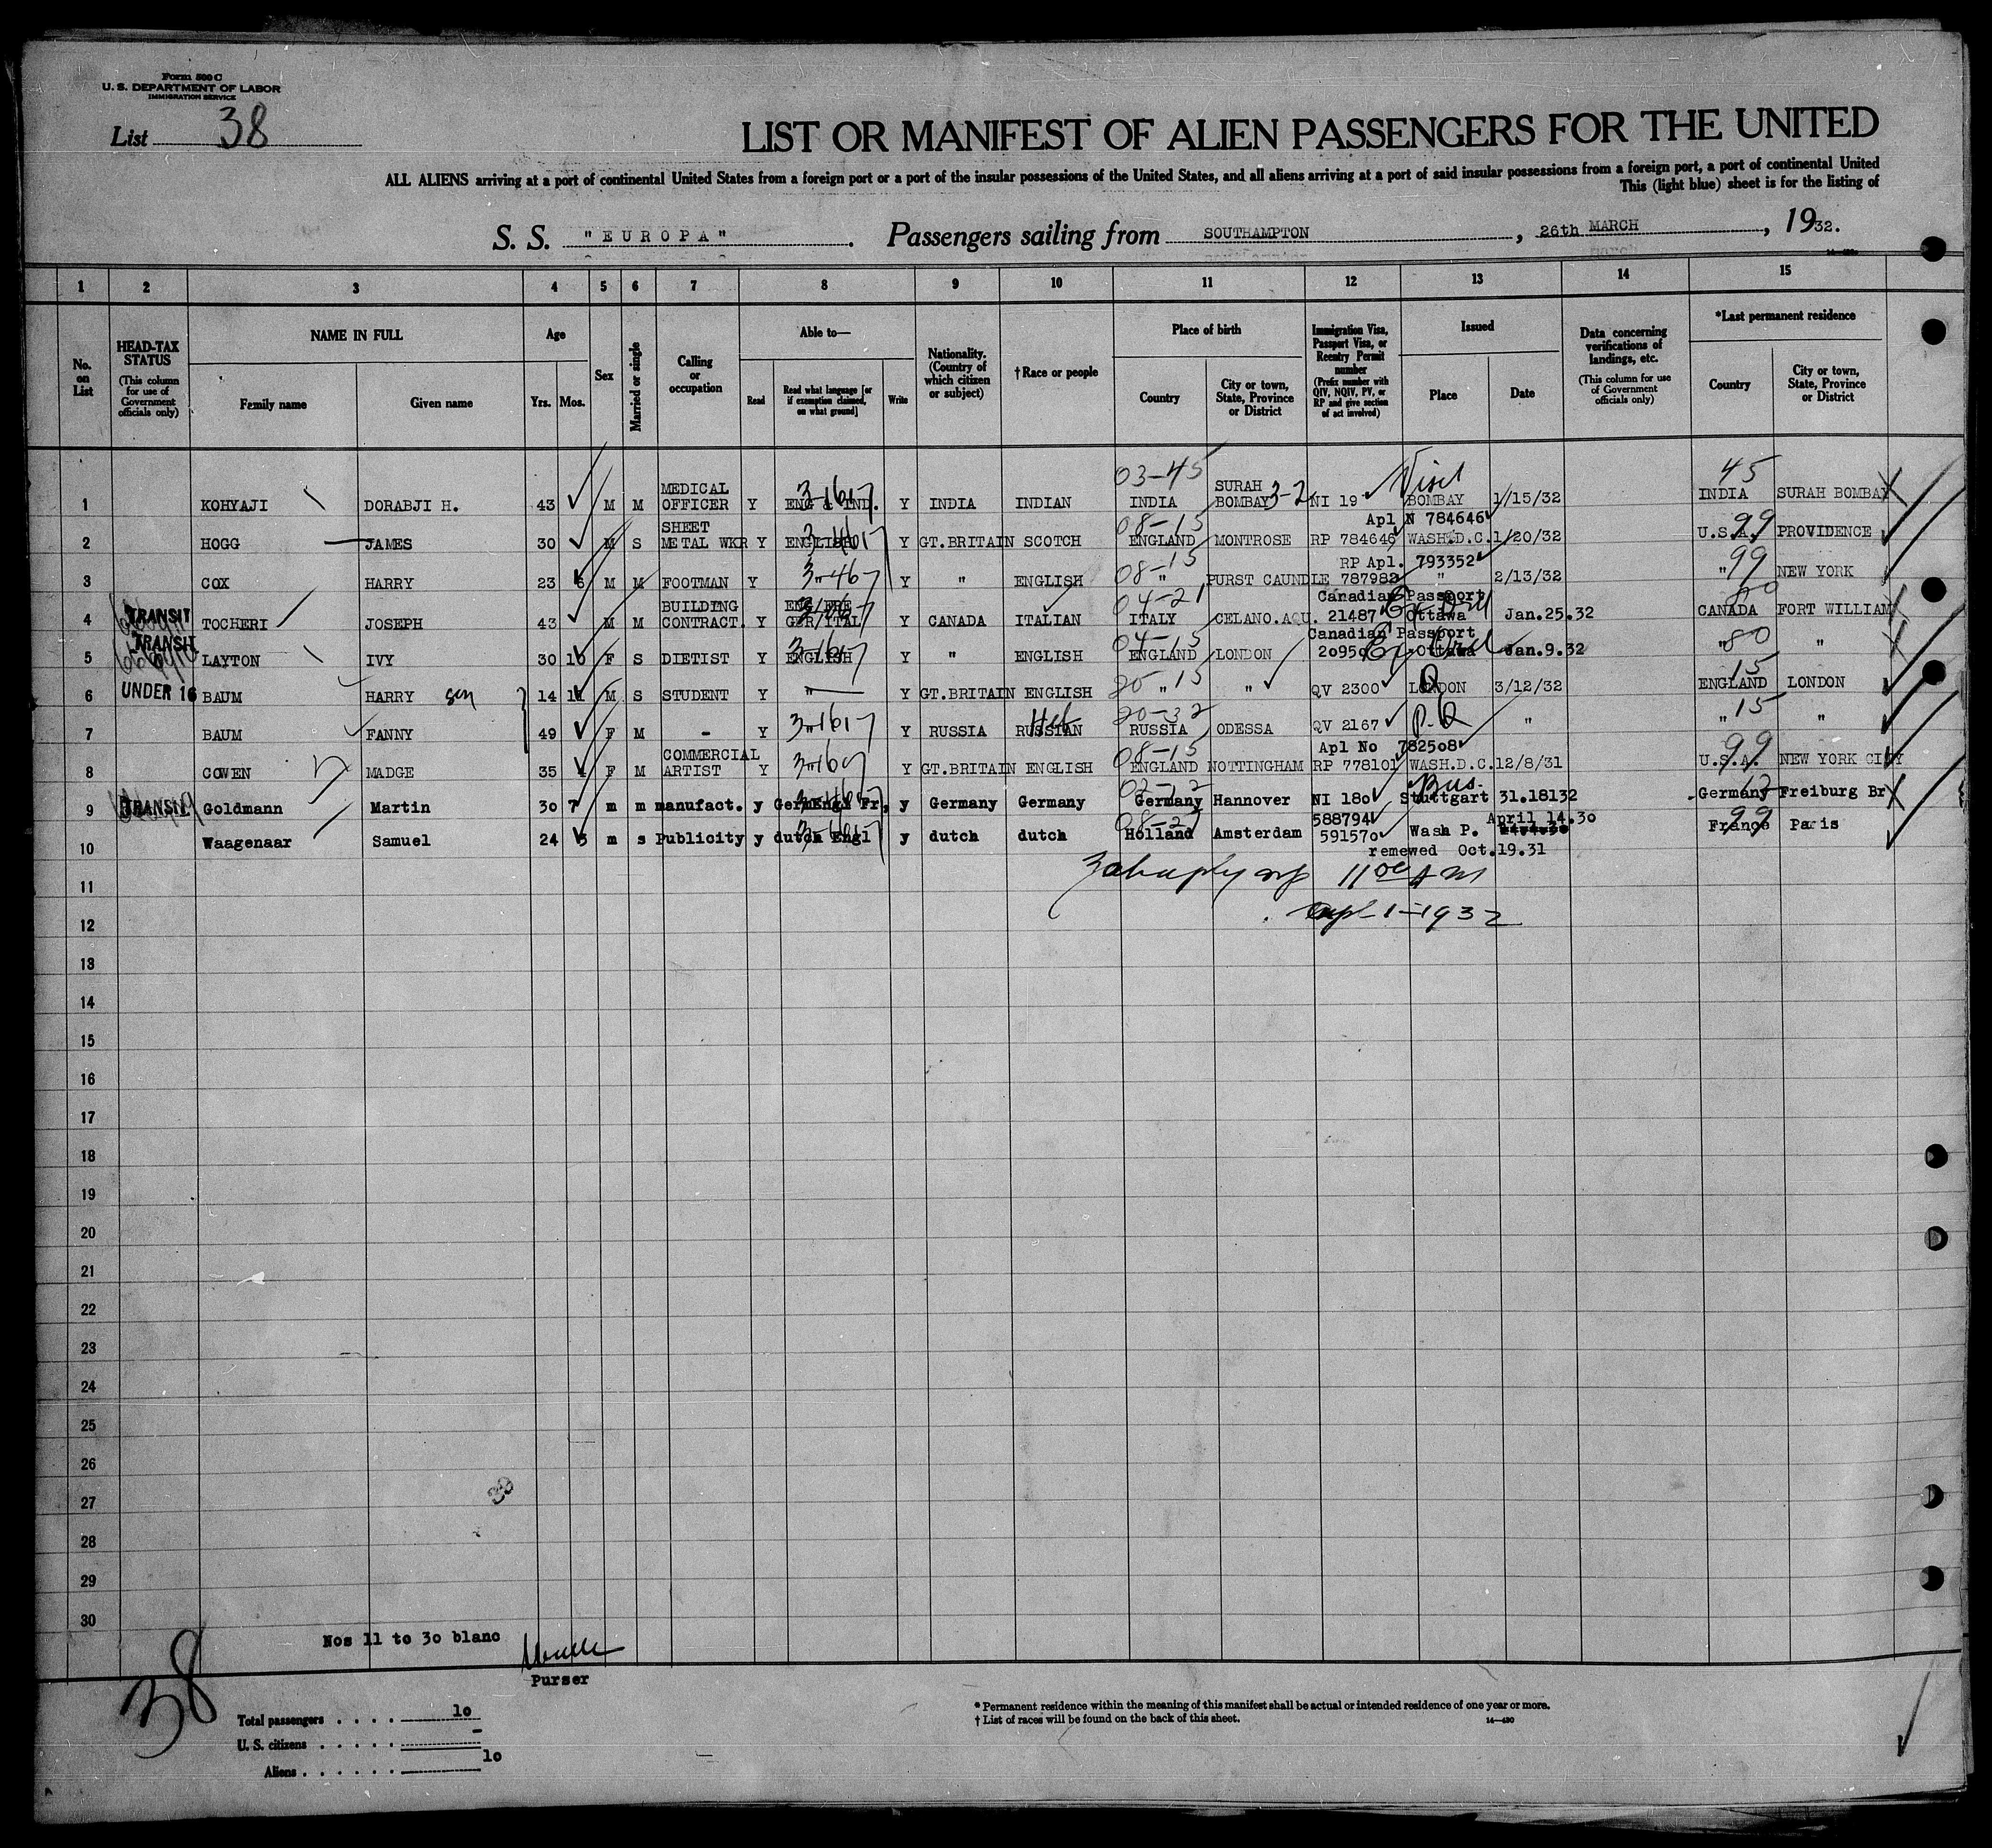 Form 500 C
U. S. DEPARTMENT OF LABOR
IMMIGRATION SERVICE
List 38
LIST OR MANIFEST OF ALIEN PASSENGERS FOR THE UNITED
ALL ALIENS arriving at a port of continental United States from a foreign port or a port of the insular possessions of the United States, and all aliens arriving at a port of said insular possessions from a foreign port, a port of continental United
This (light blue) sheet is for the listing of
S. S. "EUROPA". Passengers sailing from SOUTHAMPTON, 26th MARCH, 1932.
1 2 3 4 5 6 7 8 9 10 11 12 13 14 15
No. on List
HEAD-TAX STATUS
(This column for use of Government officials only)
NAME IN FULL
Family name Given name
Age
Yrs. Mos.
Sex
Married or single
Calling or occupation
Able to—
Read
Read what language [or if exemption claimed, on what ground]
Write
Nationality. (Country of which citizen or subject)
†Race or people
Place of birth
Country
City or town, State, Province or District
Immigration Visa, Passport Visa, or Reentry Permit number
(Prefix number with QIV, NQIV, PV, or RP and give section of act involved)
Issued
Place Date
Data concerning verifications of landings, etc.
(This column for use of Government officials only)
*Last permanent residence
Country
City or town, State, Province or District
03-45 Visit 45
MEDICAL SURAH
1 KOHYAJI DORABJI H. 43 M M OFFICER Y ENG & IND. Y INDIA INDIAN INDIA BOMBAY 3-2 NI 19 BOMBAY 1/15/32 INDIA SURAH BOMBAY
SHEET 08-15 Apl N 784646 99
2 HOGG JAMES 30 M S METAL WKR Y ENGLISH Y GT.BRITAIN SCOTCH ENGLAND MONTROSE RP 784646 WASH.D.C. 1/20/32 U.S.A. PROVIDENCE
08-15 RP Apl. 793352 99
3 COX HARRY 23 6 M M FOOTMAN Y " Y " ENGLISH " PURST CAUNDLE 787982 " 2/13/32 " NEW YORK
BUILDING ENG FRE 04-21 Canadian Passport 80
4 TRANSIT TOCHERI JOSEPH 43 M M CONTRACT. Y GER/ITAL Y CANADA ITALIAN ITALY CELANO.AQU. 21487 Ottawa Jan.25.32 CANADA FORT WILLIAM
04-15 Canadian Passport 80
5 TRANSIT LAYTON IVY 30 10 F S DIETIST Y ENGLISH Y " ENGLISH ENGLAND LONDON 20950 Ottawa Jan.9.32 " "
15 Q 15
6 UNDER 16 BAUM HARRY 14 11 M S STUDENT Y " Y GT.BRITAIN ENGLISH " " QV 2300 LONDON 3/12/32 ENGLAND LONDON
20-32 Heb P.Q 15
7 BAUM FANNY 49 F M - Y " Y RUSSIA RUSSIAN RUSSIA ODESSA QV 2167 " " "
COMMERCIAL 08-15 Apl No 782508 99
8 COWEN MADGE 35 4 F M ARTIST Y " Y GT.BRITAIN ENGLISH ENGLAND NOTTINGHAM RP 778101 WASH.D.C. 12/8/31 U.S.A. NEW YORK CITY
02-12 Bus. 12
9 TRANSIT Goldmann Martin 30 7 m m manufact. y Germ Engl Fr, y Germany Germany Germany Hannover NI 180 Stuttgart 31.18132 Germany Freiburg Br
08-27 588794 April 14.30 99
10 Waagenaar Samuel 24 5 m s Publicity y dutch Engl y dutch dutch Holland Amsterdam 591570 Wash P. France Paris
remewed Oct.19.31
11 11 00 AM
12 1-1932
13
14
15
16
17
18
19
20
21
22
23
24
25
26
27
28
29
30
Nos 11 to 30 blanc
Purser
38
Total passengers . . . . 10
U. S. citizens . . . . . –
Aliens . . . . . . 10
* Permanent residence within the meaning of this manifest shall be actual or intended residence of one year or more.
† List of races will be found on the back of this sheet.
14—430